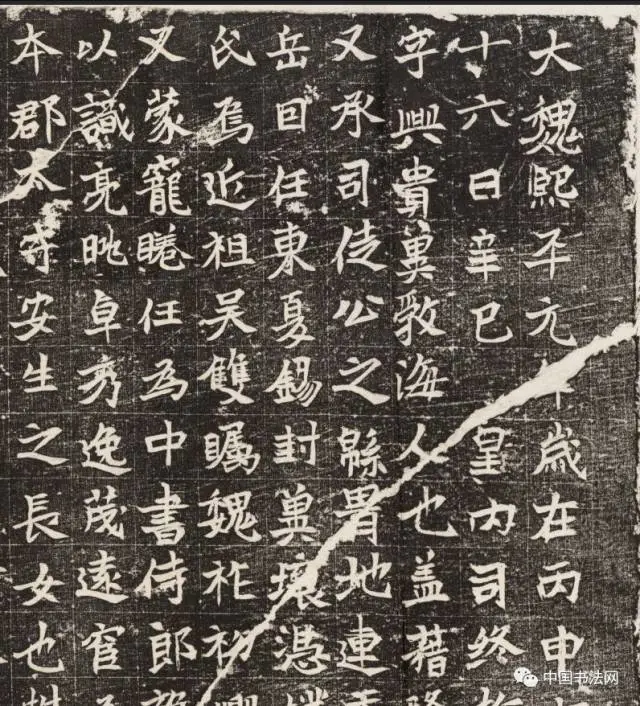 大魏熙平元年歲在丙申
十六日辛巳皇內司終
字興貴冀敦海人也盖藉
又承司徒公之緜胄地連
岳囙任東夏錫封冀壤憑
氏焉近祖吳雙矚魏祚初
又蒙寵睠任為中書侍郎
以識亮眺卓秀逸茂遠官
本郡太守安生之長女也性
中国书法网